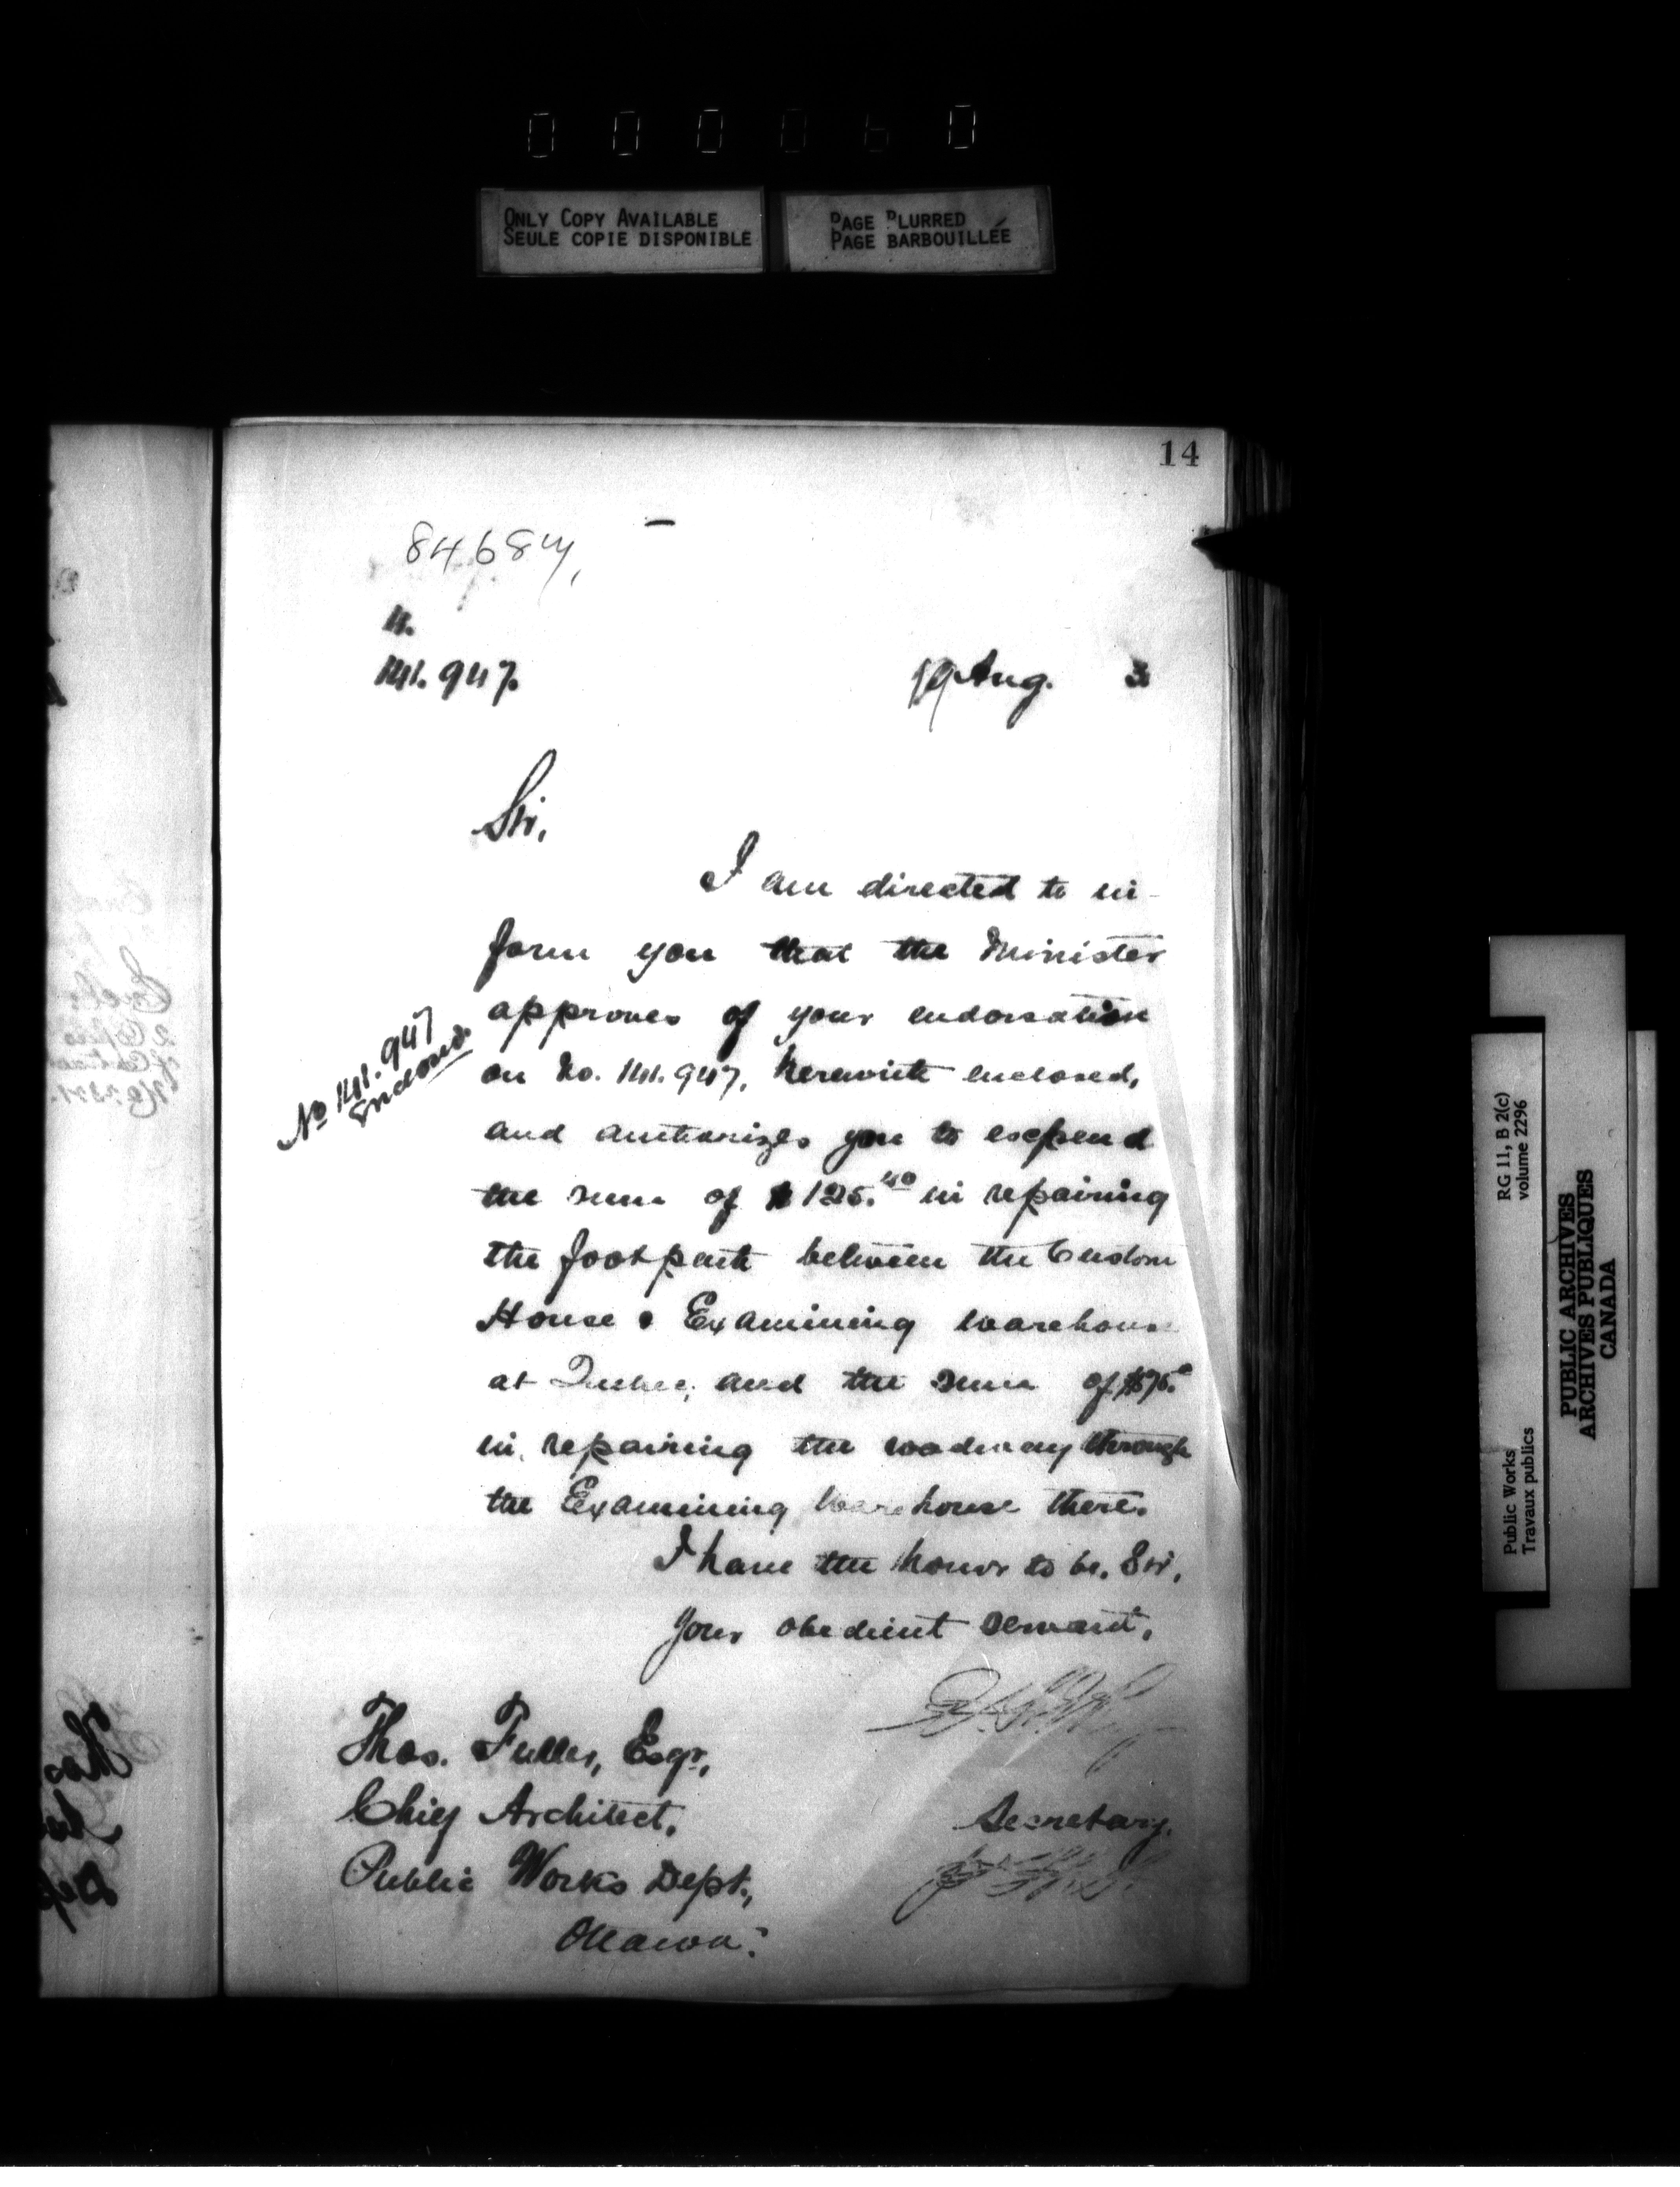 0 0 0 0 6 0
ONLY COPY AVAILABLE
SEULE COPIE DISPONIBLE
PAGE BLURRED
PAGE BARBOUILLÉE
14
84684,
141.947.
19 Aug. 3
Sir,
I am directed to in-
form you that the Minister
approves of your endorsation
on No. 141.947, herewith enclosed,
and authorizes you to expend
the sum of $125.40 in repairing
the footpath between the Custom
House & Examining Warehouse
at Quebec, and the sum of $
in repairing the roadway through
the Examining Warehouse there.
I have the honor to be, Sir,
Your obedient servant,
No 141.947
Enclosed.
Thos. Fuller, Esqr,
Chief Architect,
Public Works Dept.,
Ottawa.
Secretary.
RG 11, B 2(c)
volume 2296
Public Works
Travaux publics
PUBLIC ARCHIVES
ARCHIVES PUBLIQUES
CANADA